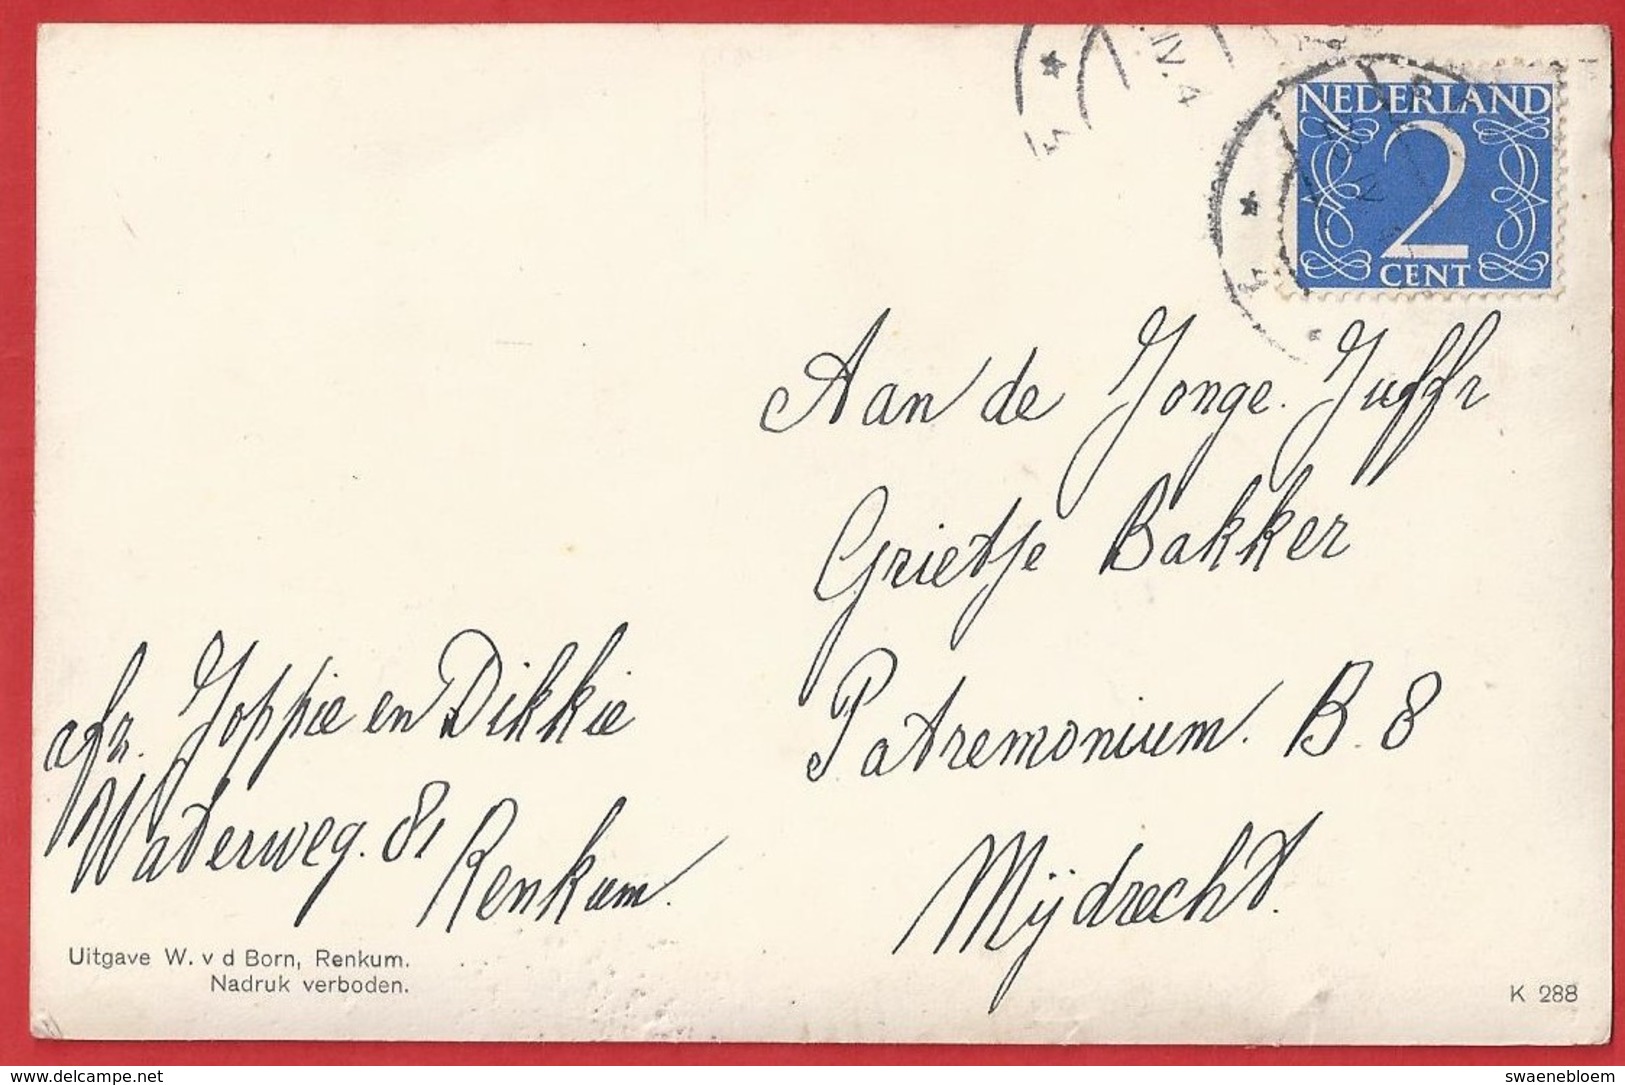 NEDERLAND
2
CENT
Aan de Jonge. Juffr
Grietje Bakker
Patremonium. B. 8
Mijdrecht.
afr. Joppie en Dikkie
Waterweg. 81
Renkum.
Uitgave W. v d Born, Renkum.
Nadruk verboden.
K 288
www.delcampe.net
swaenebloem